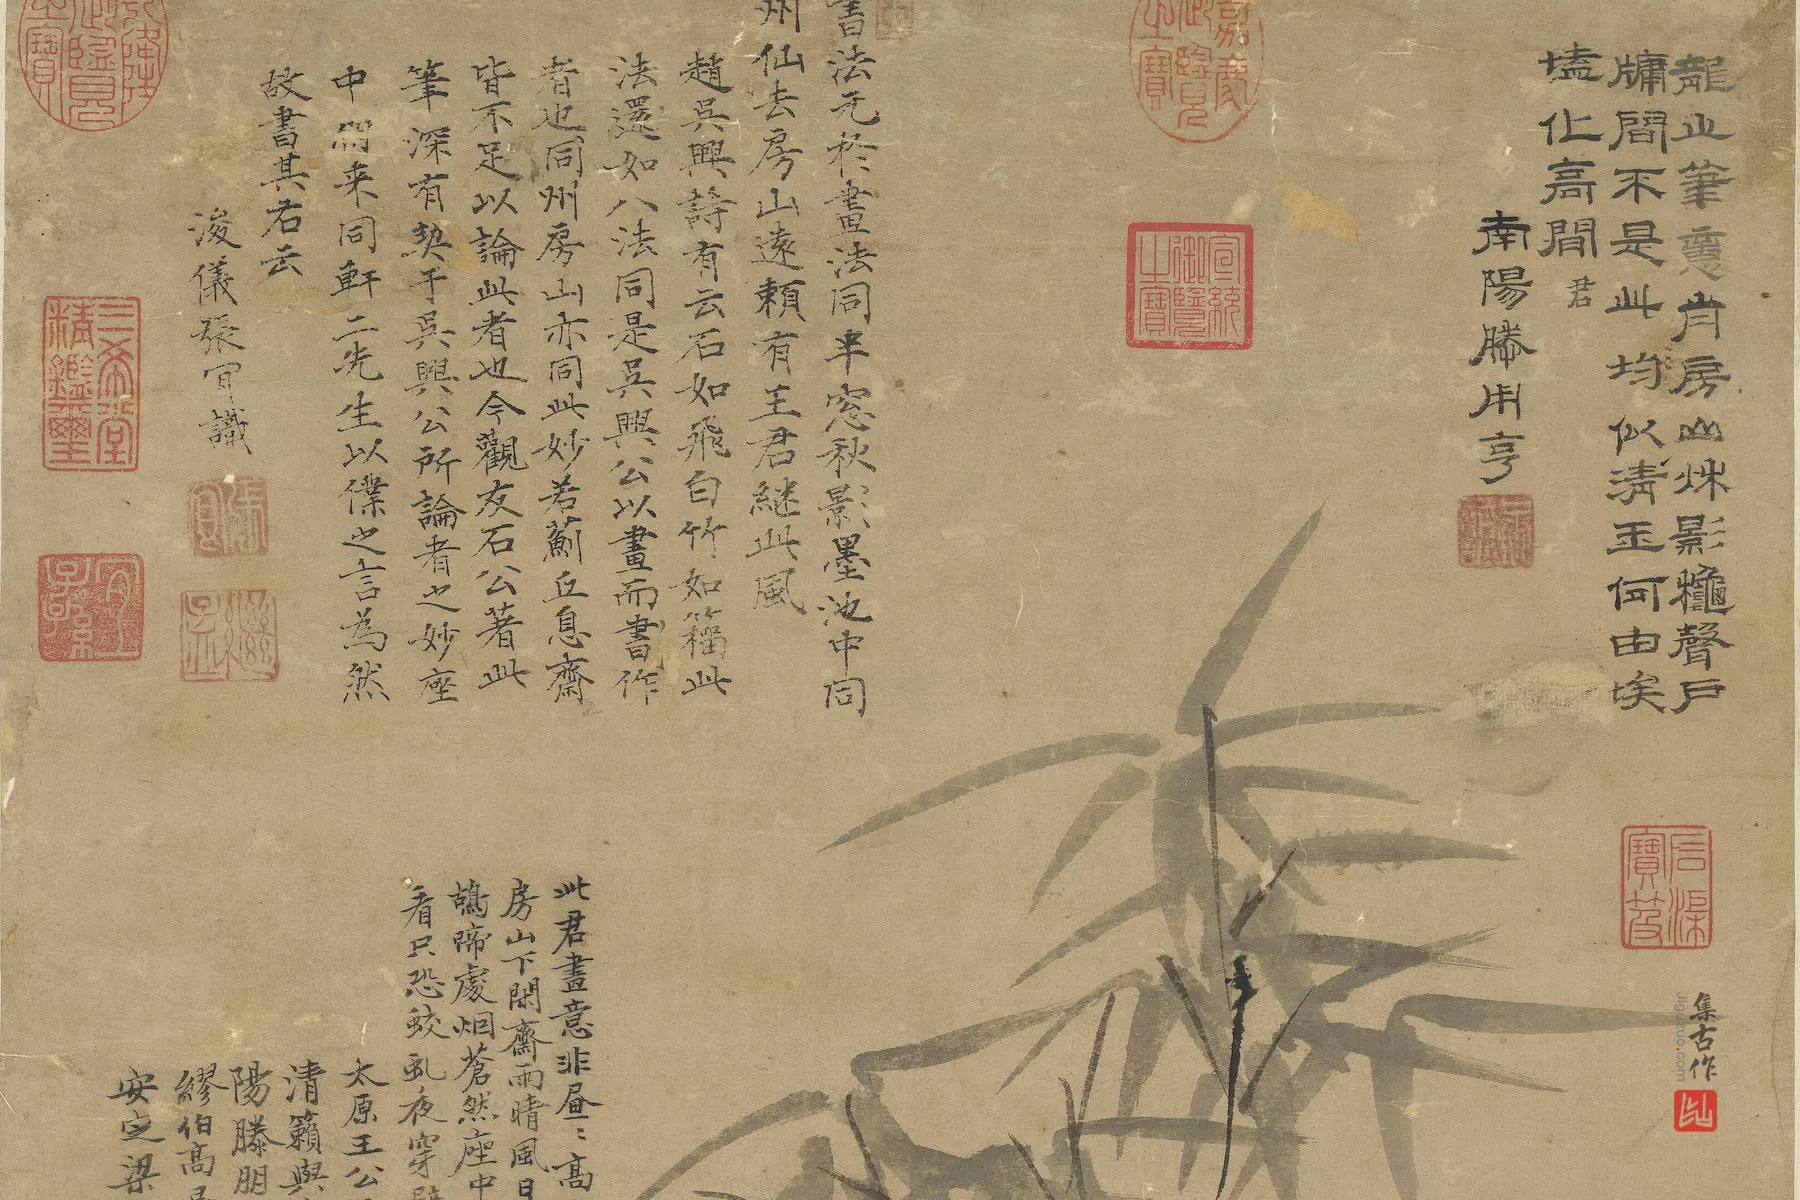 龍止筆意肖房山秌影龝聲戶
牗間不是此均似清玉何由埃
壒化高間
君
南陽滕用亨
嘉慶御覽之寶
宣統御覽之寶
石渠寶笈
書法元於畫法同半窓秋影墨池中同
州仙去房山遠頼有王君継此風
趙吳興詩有云石如飛白竹如籀此
法還如八法同是吳興公以畫而書作
者也同州房山亦同此妙若薊丘息齋
皆不足以論此者也今觀友石公著此
筆深有契于吳興公所論者之妙座
中閒来同軒二先生以僕之言為然
故書其右云
浚儀張宜識
乾隆御覽之寶
三希堂精鑑璽
宜子孫
此君畫意非凮〻高
房山下閑齋雨晴風日
鴣啼處烟蒼然座中
看只恐蛟虬夜穿
太原王公
清籟與
陽滕朋
繆伯高
安定梁
集古作
jiguzuo.com